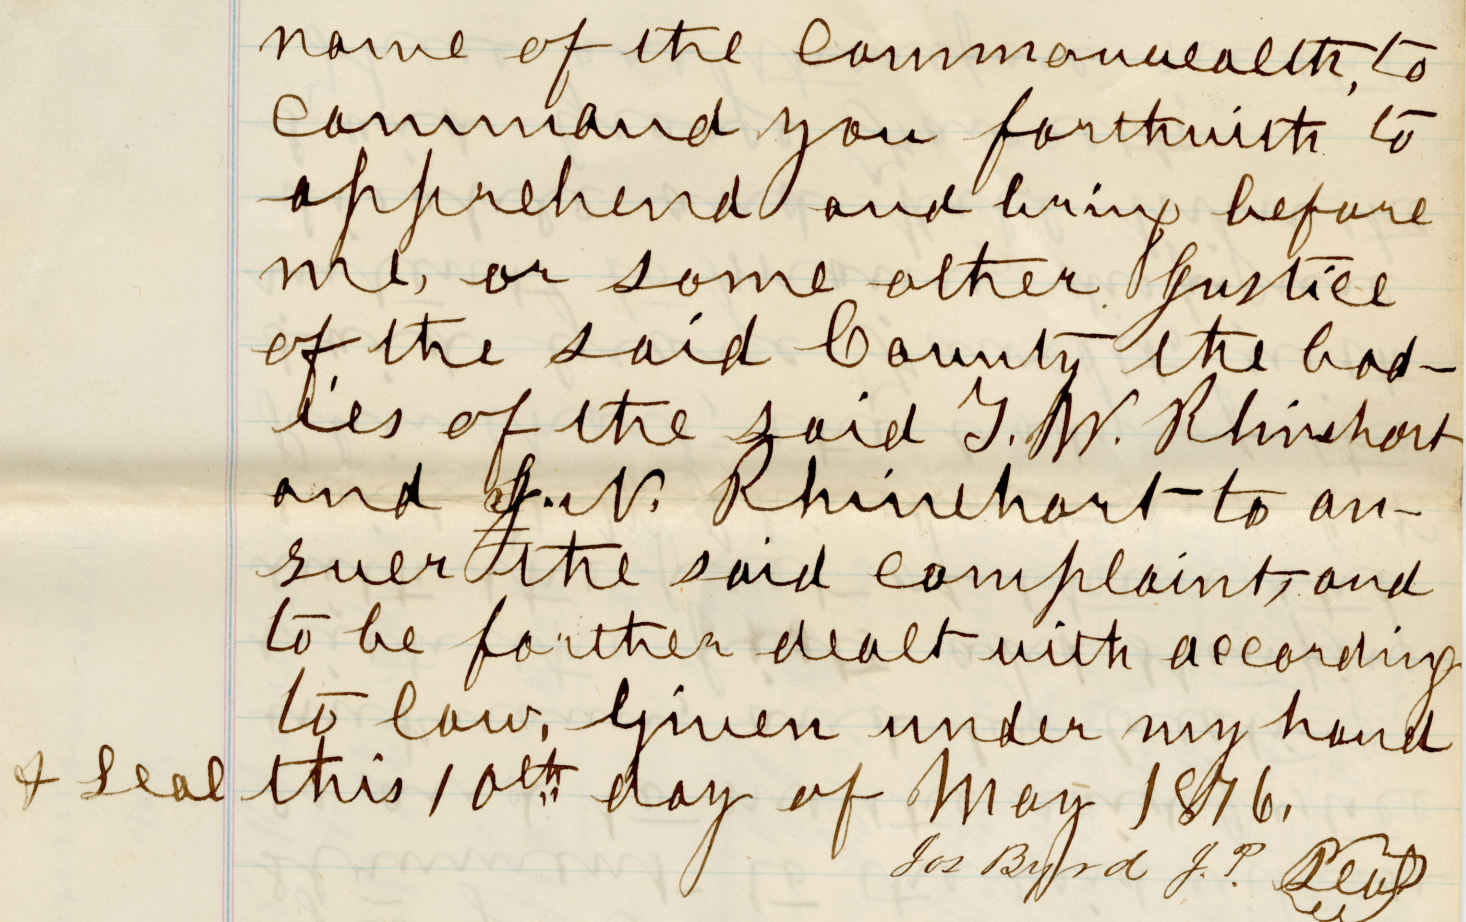 name of the Commonwealth, to
command you forthwith to
apprehend and bring before
me, or some other Justice
of the said County the bod-
ies of the said J. W. Rhinehart
and J. N. Rhinehart to an-
swer the said complaint, and
to be further dealt with according
to law. Given under my hand
& Seal this 10th day of May 1876.
Jos Byrd J. P. Seal